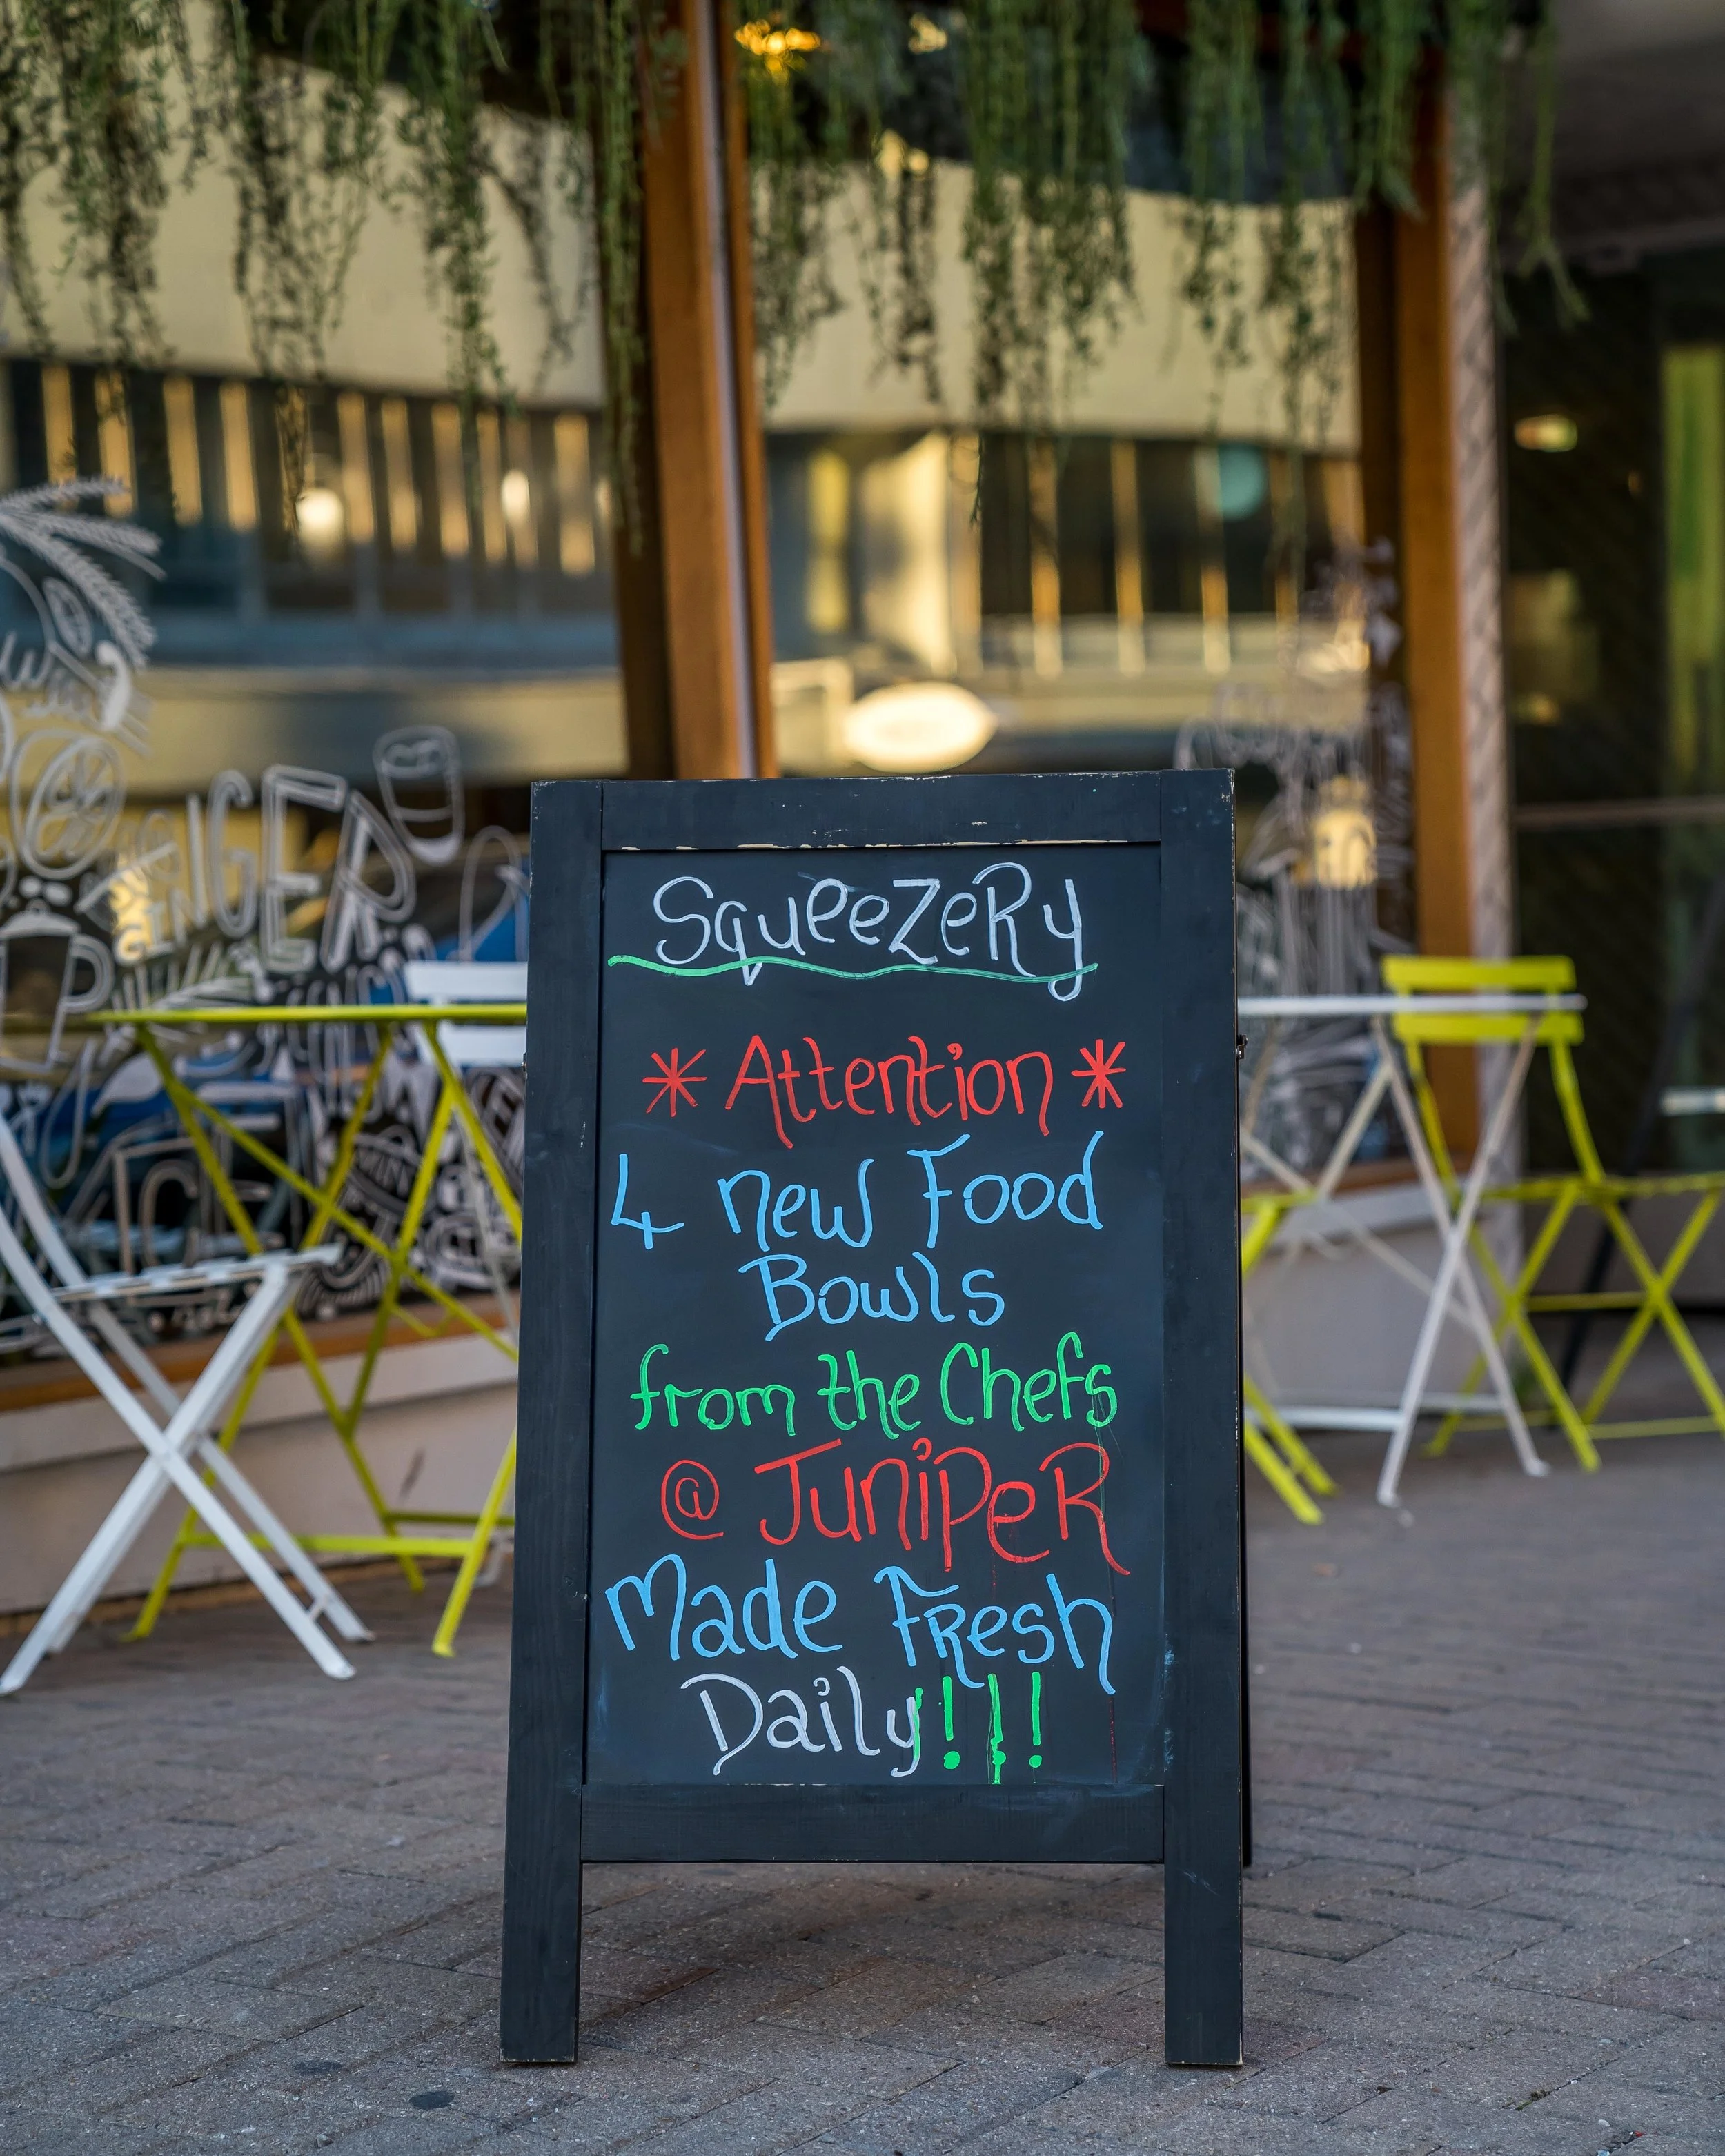 SqueeZeRy
* Attention *
4 new Food
Bowls
from the Chefs
@ JuNiPeR
Made FResh
Daily!!!
GINGER